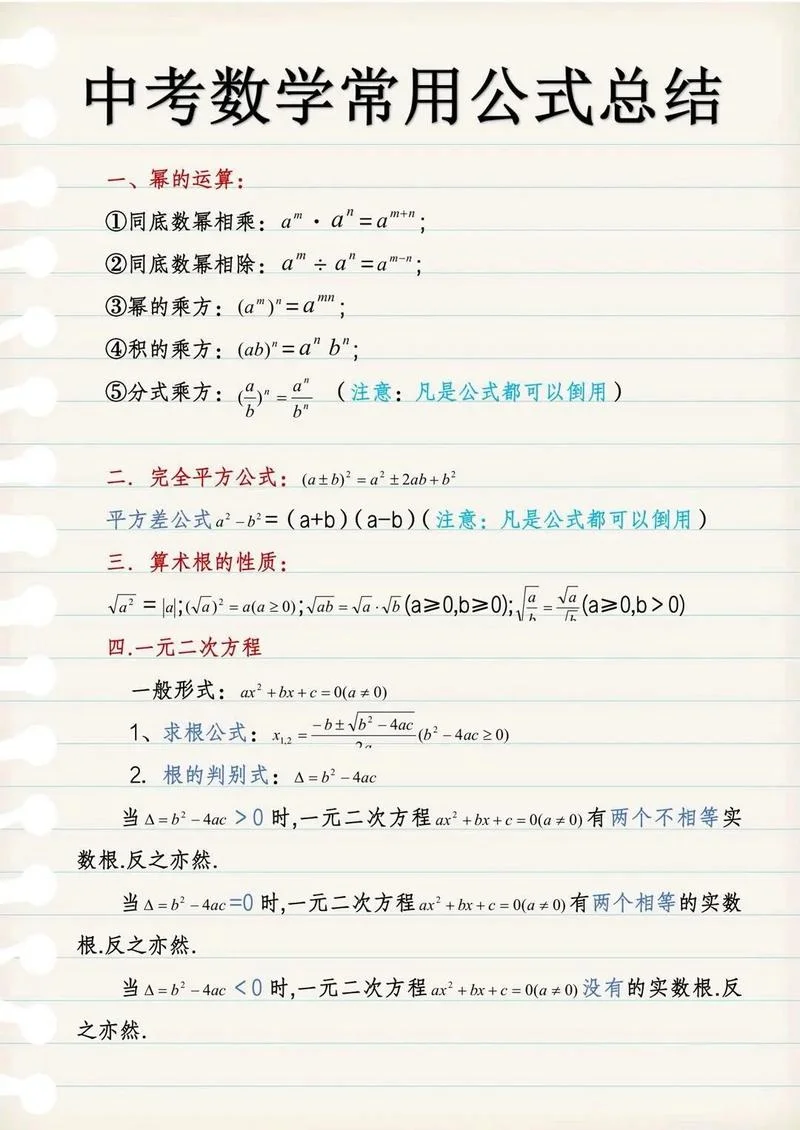 中考数学常用公式总结
一、幂的运算:
①同底数幂相乘: a^m · a^n = a^{m+n};
②同底数幂相除: a^m ÷ a^n = a^{m-n};
③幂的乘方: (a^m)^n = a^{mn};
④积的乘方: (ab)^n = a^n b^n;
⑤分式乘方: (a/b)^n = a^n/b^n (注意: 凡是公式都可以倒用)
二. 完全平方公式: (a±b)² = a² ± 2ab + b²
平方差公式 a² − b² = (a+b)(a−b)(注意: 凡是公式都可以倒用)
三. 算术根的性质:
√a² = |a|; (√a)² = a(a≥0); √ab = √a · √b (a≥0,b≥0); √(a/b) = √a/√b (a≥0,b>0)
四.一元二次方程
一般形式: ax² + bx + c = 0(a ≠ 0)
1、求根公式: x_{1,2} = (−b ± √(b² − 4ac))/2a (b² − 4ac ≥ 0)
2. 根的判别式: Δ = b² − 4ac
当 Δ = b² − 4ac >0 时,一元二次方程 ax² + bx + c = 0(a ≠ 0) 有两个不相等实
数根.反之亦然.
当 Δ = b² − 4ac =0 时,一元二次方程 ax² + bx + c = 0(a ≠ 0) 有两个相等的实数
根.反之亦然.
当 Δ = b² − 4ac <0 时,一元二次方程 ax² + bx + c = 0(a ≠ 0) 没有的实数根.反
之亦然.